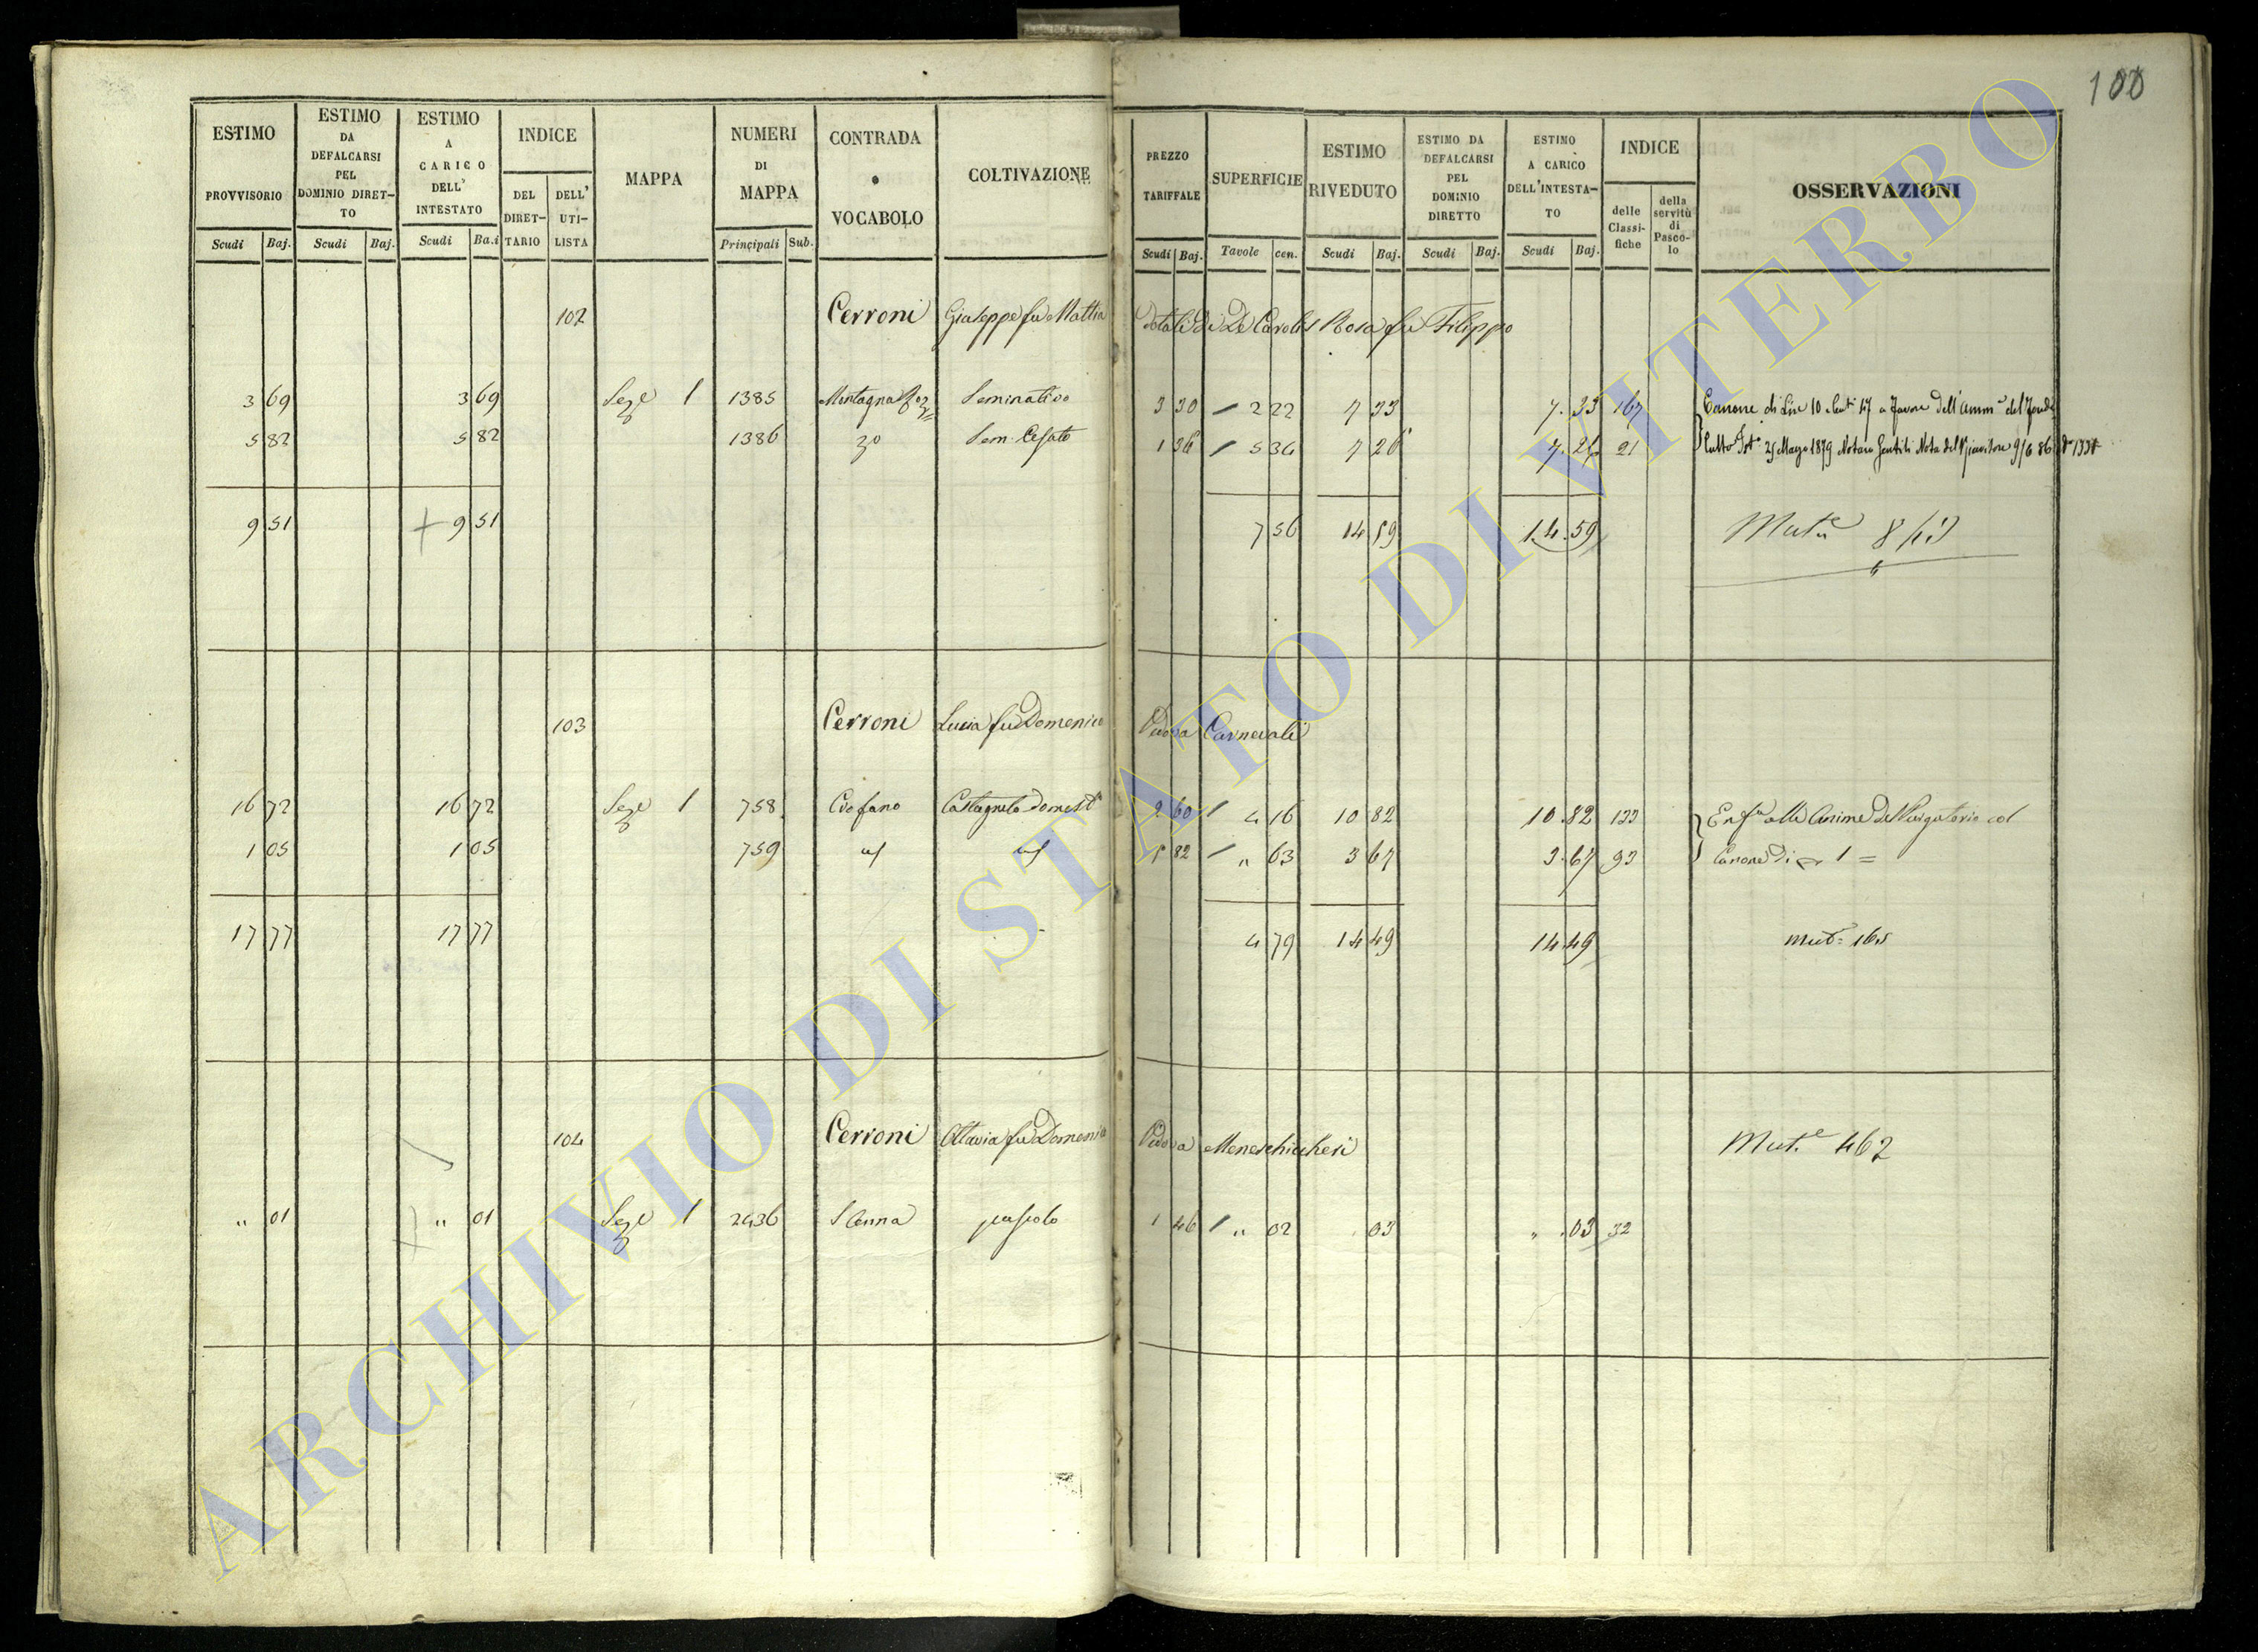 100
ESTIMO PROVVISORIO Scudi Baj.
ESTIMO DA DEFALCARSI PEL DOMINIO DIRET-TO Scudi Baj.
ESTIMO A CARICO DELL' INTESTATO Scudi Ba.i
INDICE DEL DIRET-TARIO DELL' UTI-LISTA
MAPPA
NUMERI DI MAPPA Principali Sub.
CONTRADA o VOCABOLO
COLTIVAZIONE
PREZZO TARIFFALE Scudi Baj.
SUPERFICIE Tavole cen.
ESTIMO RIVEDUTO Scudi Baj.
ESTIMO DA DEFALCARSI PEL DOMINIO DIRETTO Scudi Baj.
ESTIMO A CARICO DELL'INTESTA-TO Scudi Baj.
INDICE delle Classi-fiche della servitù di Pasco-lo
OSSERVAZIONI
102 Cerroni Giuseppe fu Mattia Dotali di De Carolis Rosa fu Filippo
3 69 3 69 Seze 1 1385 Montagna Seminativo 3 30 1 2 22 7 33 7.33 167 Canone di Lire 10 Cent 47 a favore dell' Amm. del Fondo
5 82 5 82 1386 Sem. Cesato 1 36 1 5 34 7 26 7.26 21 Culto 25 Marzo 1879 Notaro Gentili Nota del 9/6 86
9 51 9 51 7 56 14 59 14.59 Mut.
103 Cerroni Lucia fu Domenico Vedova Carnevali
16 72 16 72 Seze 1 758 Crofano Castagneto domest. 2 60 1 4 16 10 82 10.82 133 Enf. alle Anime del Purgatorio col
1 05 1 05 759 5 82 1 " 63 3 67 3.67 93 Canone di 1 =
17 77 17 77 4 79 14 49 14.49 Mut.
104 Cerroni Ottavia fu Domenico Vedova Meneschincheri Mut. 462
" 01 " 01 Seze 1 2436 S Anna pascolo 1 46 1 " 02 03 " .03 32
ARCHIVIO DI STATO DI VITERBO